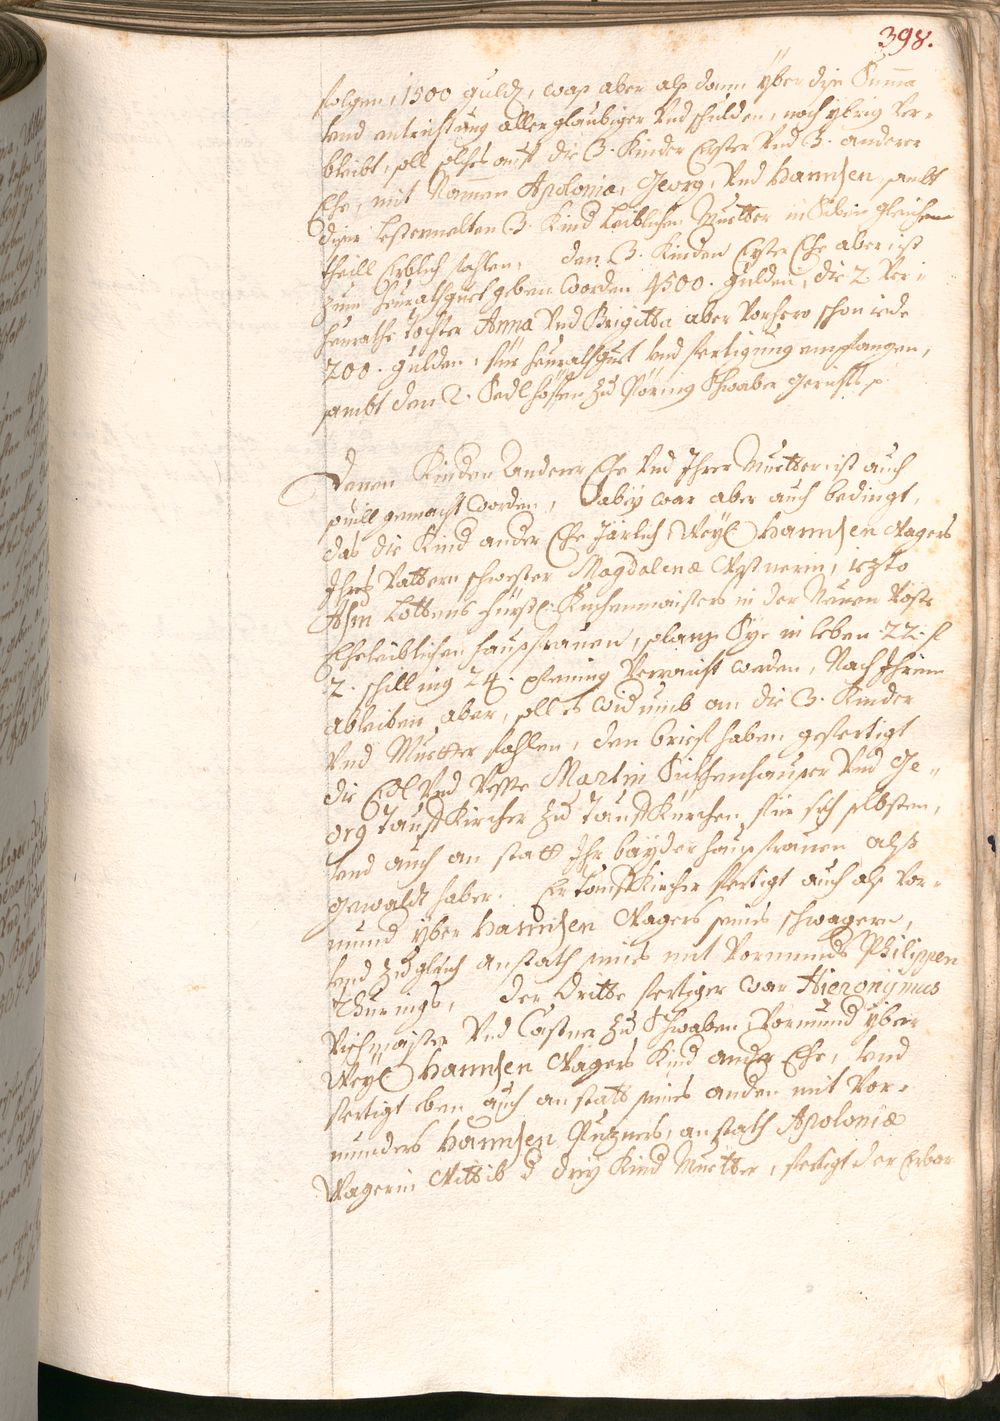 398.
folgen, 1500 guld, was aber alß dann yber dise Summa
vnd entrichtung aller glaubiger vnd schulden, noch ybrig ver-
bleibt, soll solches auf die 3. Kinder Erster vnd 3. anderer
Ehe, mit Nammen Apolonia, Georg, vnd Hannsen, sambt
diser bestermelten 3. Kind leiblichen Muetter in Siben gleichen
theill Erblich fahlen, den 3. Kinden Erster Ehe aber ist
zum heurathguet geben worden 4500. gulden, die 2. ver-
heurathe Töchter Anna vnd Brigitta aber vorhero schon iede
200. gulden, für heurathguet vnd fertigung empfangen,
sambt den 2. Sedlhöffen zu Pöring Schwaber gerichts p.
Denen Kinden Anderer Ehe vnd Ihrer Muetter, ist auch
souill gemacht worden, dabey war aber auch bedingt,
das die Kind ander Ehe Järlich, Weyl Hannsen Wagers
Ihres Vattern schwester Magdalenæ Westnerin, iezto
Lottens Fürstl: Kuchenmaisters in der Neuen Vöste
Eheleiblichen hausfrauen, solang Sye in leben 22. fl
2. schilling 24. pfening verraicht werden, Nach Ihrem
ableiben aber, soll es widerumb an die 3. Kinder
vnd Muetter fahlen, den brieff haben gefertigt
die Edl vnd Veste Martin Sickhenhauser vnd Ge-
org Tauffkircher zu Tauffkürchen für sich selbsten,
vnd auch an statt Ihr bayder hausfrauen alß
gewalt haber. Er Tauffkircher fertigt auch alß vor-
mund yber Hannsen Wagers seines schwagern,
vnd zugleich anstath seines mit Vormunds Philippen
Thurings, der dritte fertiger war Hieronÿmus
Richter vnd Castner zu Schwaben, Vormund yber
Weyl Hannsen Wagers Kind ander Ehe, vnd
fertigt eben auch anstatt seines anden mit Vor-
munders Hannsen Puzners, anstath Apoloniæ
Wagerin Wittib d drey Kind Muetter, fertigt der Erbar